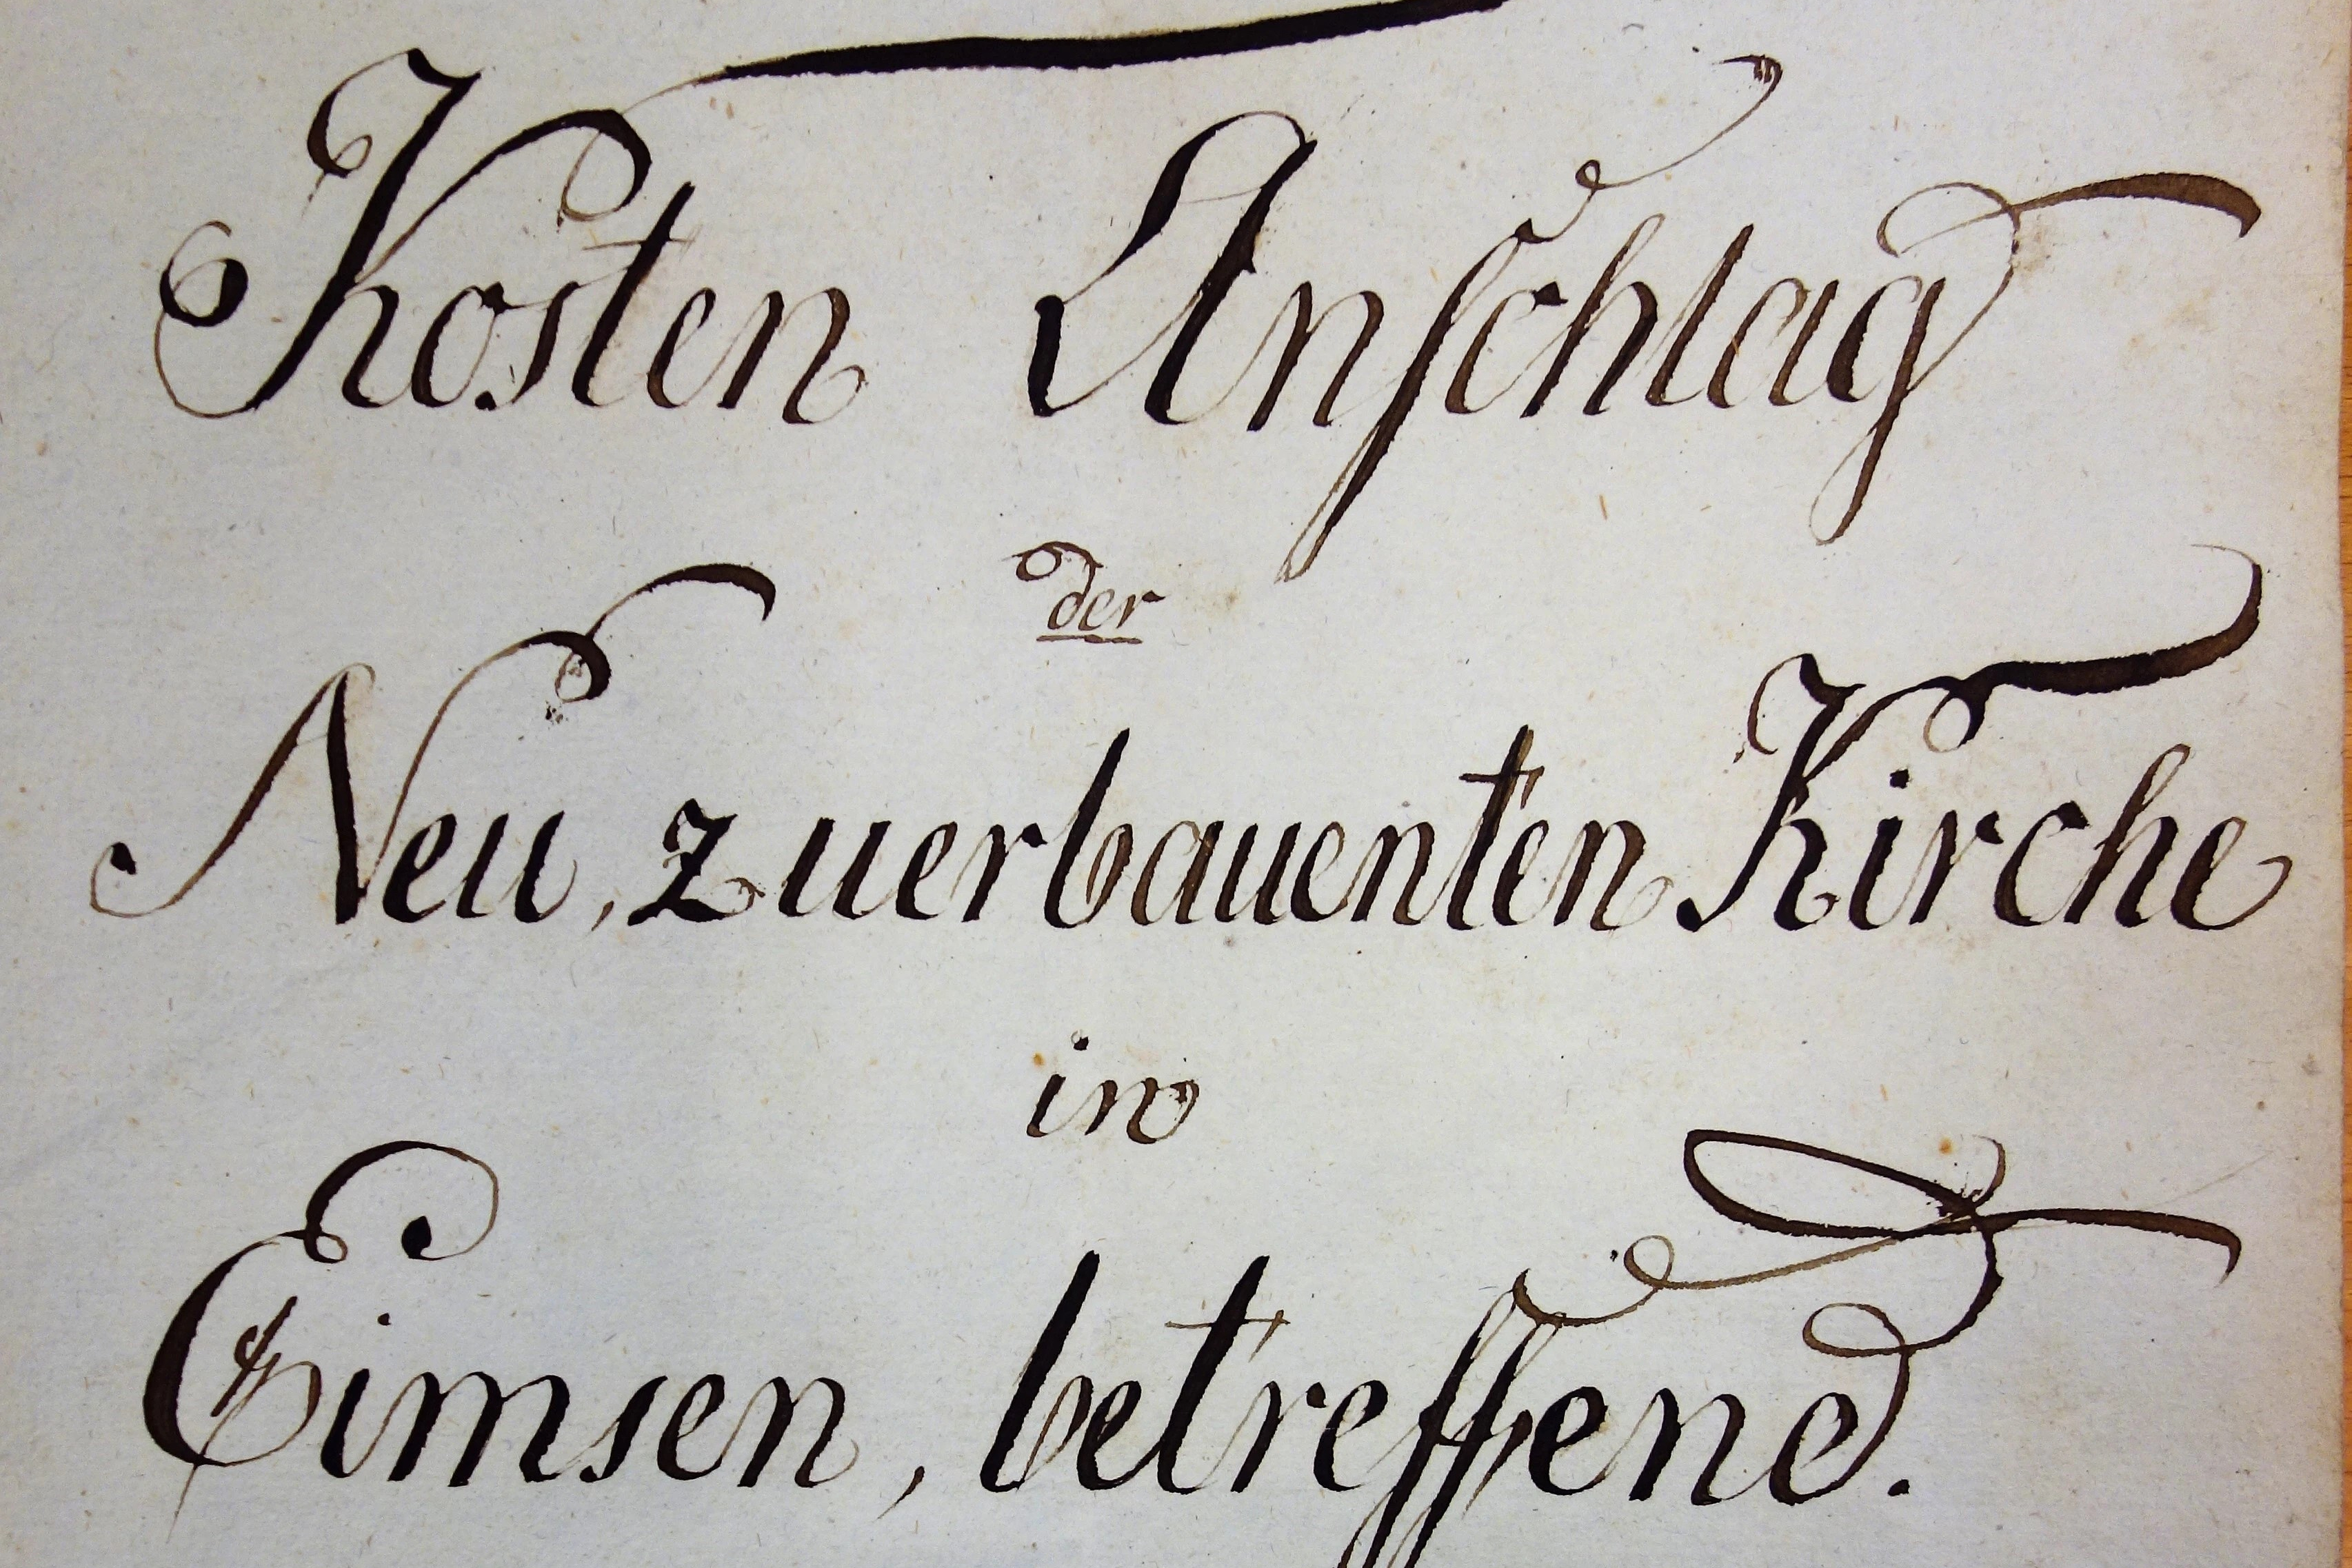 Kosten Anſchlag
der
Neu, zuerbauenten Kirche
in
Eimsen, betreffend.